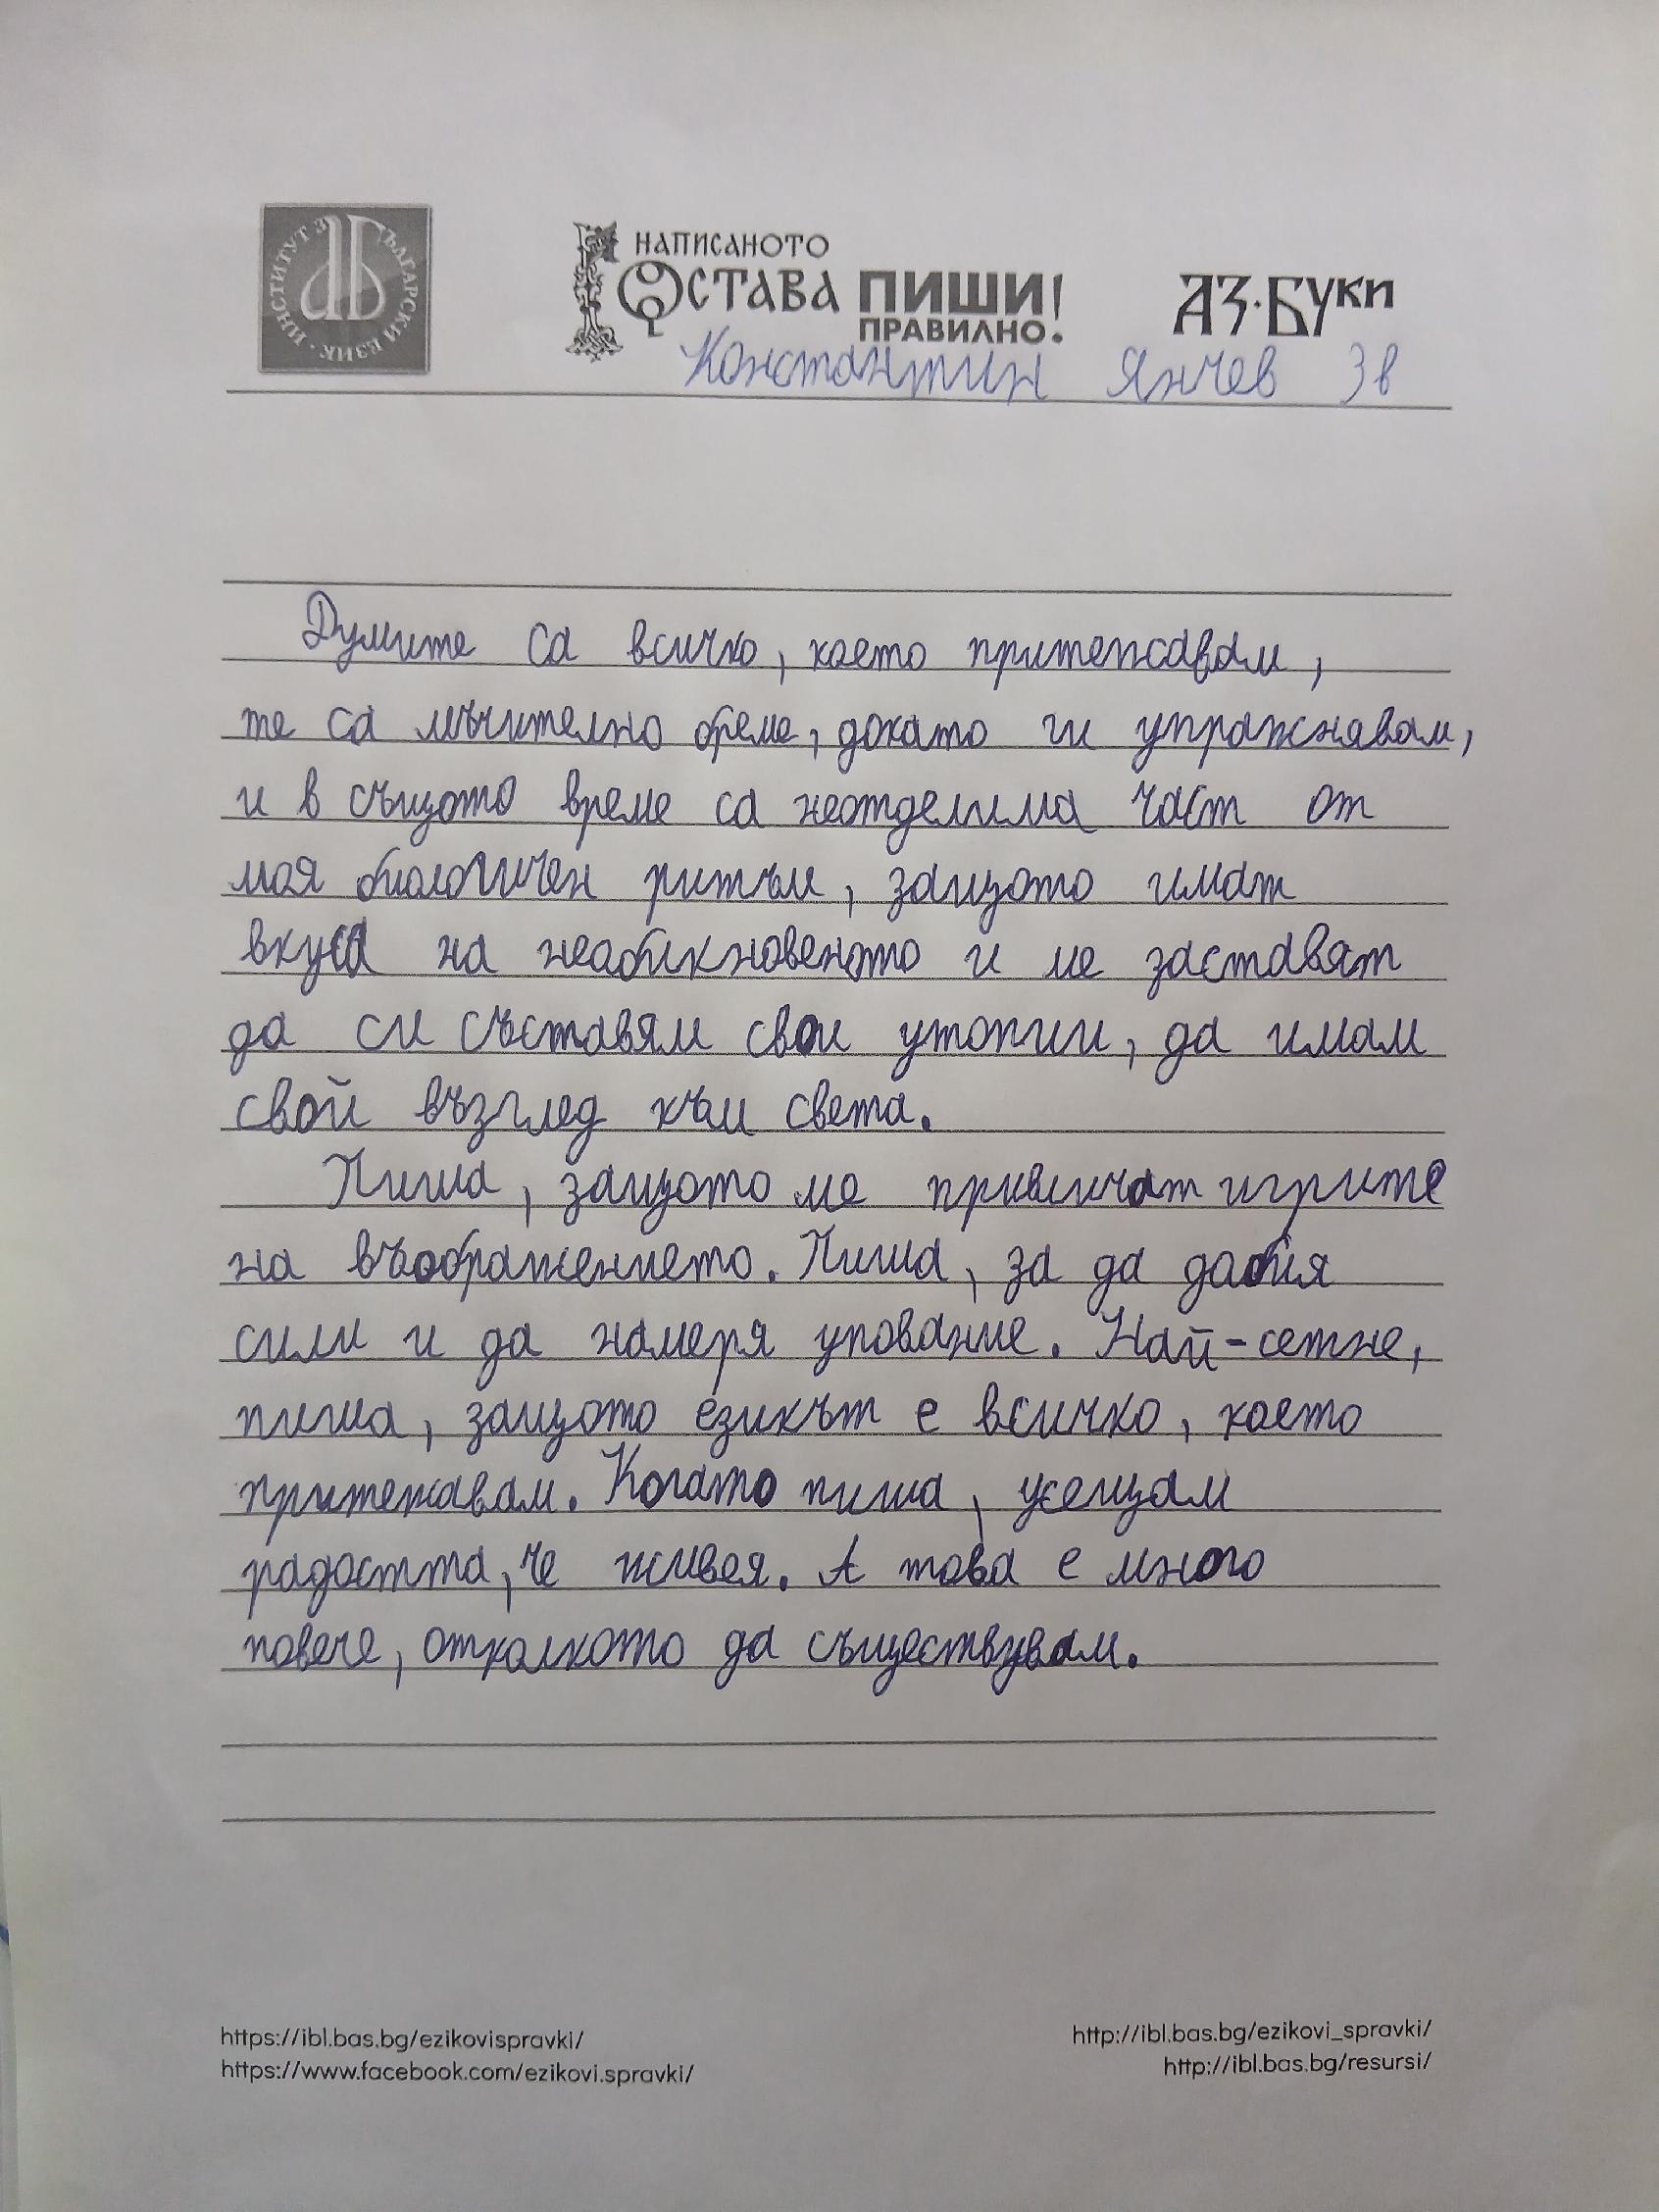 ИНСТИТУТ ЗА БЪЛГАРСКИ ЕЗИК
НАПИСАНОТО
ОСТАВА ПИШИ!
ПРАВИЛНО!
АЗ·БУКИ
Константин Янчев 3в
Думите са всичко, което притежавам,
те са мъчително бреме, докато ги упражнявам,
и в същото време са неотделима част от
моя биологичен ритъм, защото имат
вкуса на необикновеното и ме заставят
да си съставям свои утопии, да имам
свой възглед към света.
Пиша, защото ме привличат игрите
на въображението. Пиша, за да добия
сили и да намеря упование. Най-сетне,
пиша, защото езикът е всичко, което
притежавам. Когато пиша, усещам
радостта, че живея. А това е много
повече, отколкото да съществувам.
https://ibl.bas.bg/ezikovispravki/
https://www.facebook.com/ezikovi.spravki/
http://ibl.bas.bg/ezikovi_spravki/
http://ibl.bas.bg/resursi/